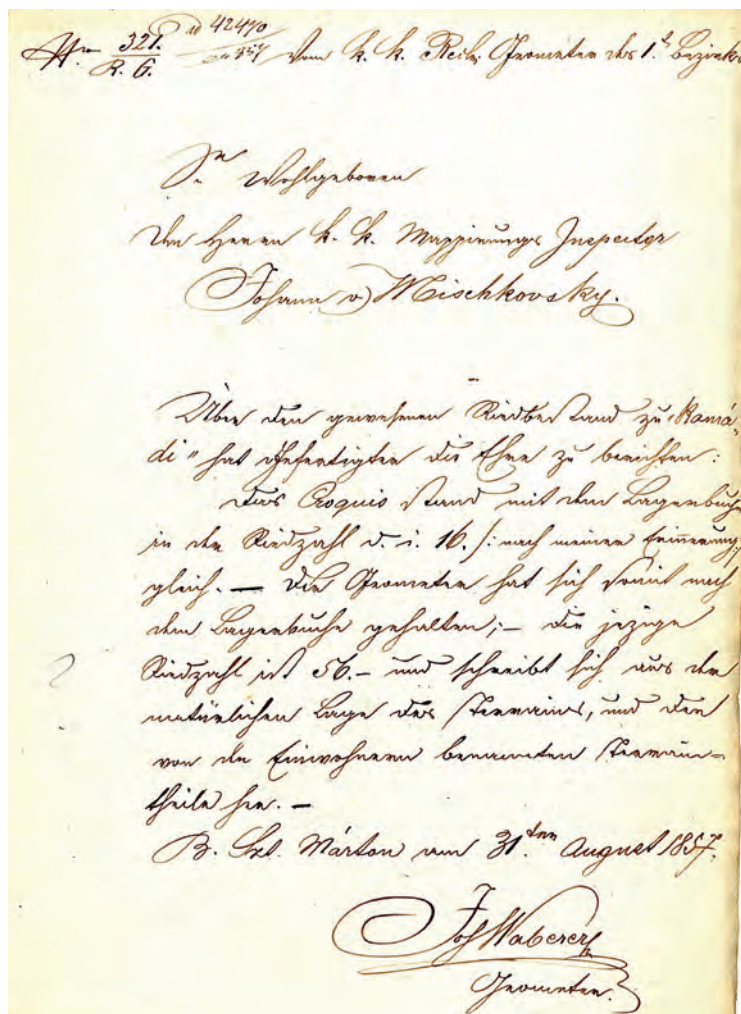 Nro 321. ad 42470
R. G. 857 Vom k. k. Rekl. Geometer des 1.t Bezirks
Sr Wohlgeboren
Den Herrn k. k. Mappirungs Inspector
Johann v Mischkovsky.
Über den gewesenen Riedbestand zu "Ramá-
di" hat Gefertigter die Ehre zu berichten:
Das Croquis stand mit dem Lagerbuche
in der Riedzahl d. i. 16. /: nach meiner Erinnerung :/
gleich. — Der Geometer hat sich somit nach
dem Lagerbuche gehalten; — die jezige
Riedzahl ist 56. — und schreibt sich aus der
natürlichen Lage des Terrains, und den
von den Einwohnern benannten Terrain-
theile her. —
B. Szt. Márton am 31.ten August 1857.
Joh Waberer
Geometer.